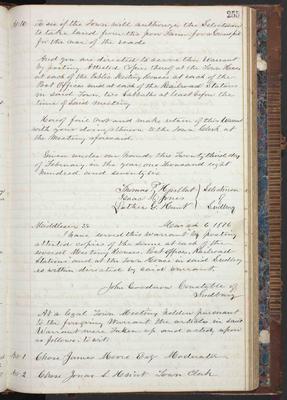 255
No 10 To see if the Town will authorize the Selectmen
to take Land from the poor Farm for Gravel pit
for the use of the roads
And you are directed to serve this Warrant
by posting attested Copies thereof at the Town House
at each of the Public Meeting Houses at each of the
Post Offices and at each of the Railroad Stations
in said Town, two Sabbaths at least before the
time of said meeting
Hereof fail not and make return of this Warrant
with your doings thereon to the Town Clerk at
the Meeting aforesaid
Given under our hands this Twenty third day
of February in the year one thousand eight
hundred and seventy six
Thomas P Hurlbut Selectmen
Isaac Jones of
Luther Hunt Sudbury
Middlesex SS March 6 1876
I have served this warrant by posting
attested copies of the same at each of the
several Meeting Houses, Post offices, Railroad
Stations and at the Town House in said Sudbury
as within directed by said warrant,
John Goodnow Constable of
Sudbury
At a legal Town Meeting holden pursuant
to the foregoing Warrant the articles in said
Warrant were Taken up and acted upon
as follows to wit
No 1 Chose James Moore Esq Moderator
No 2 Chose Jonas S Hunt Town Clerk